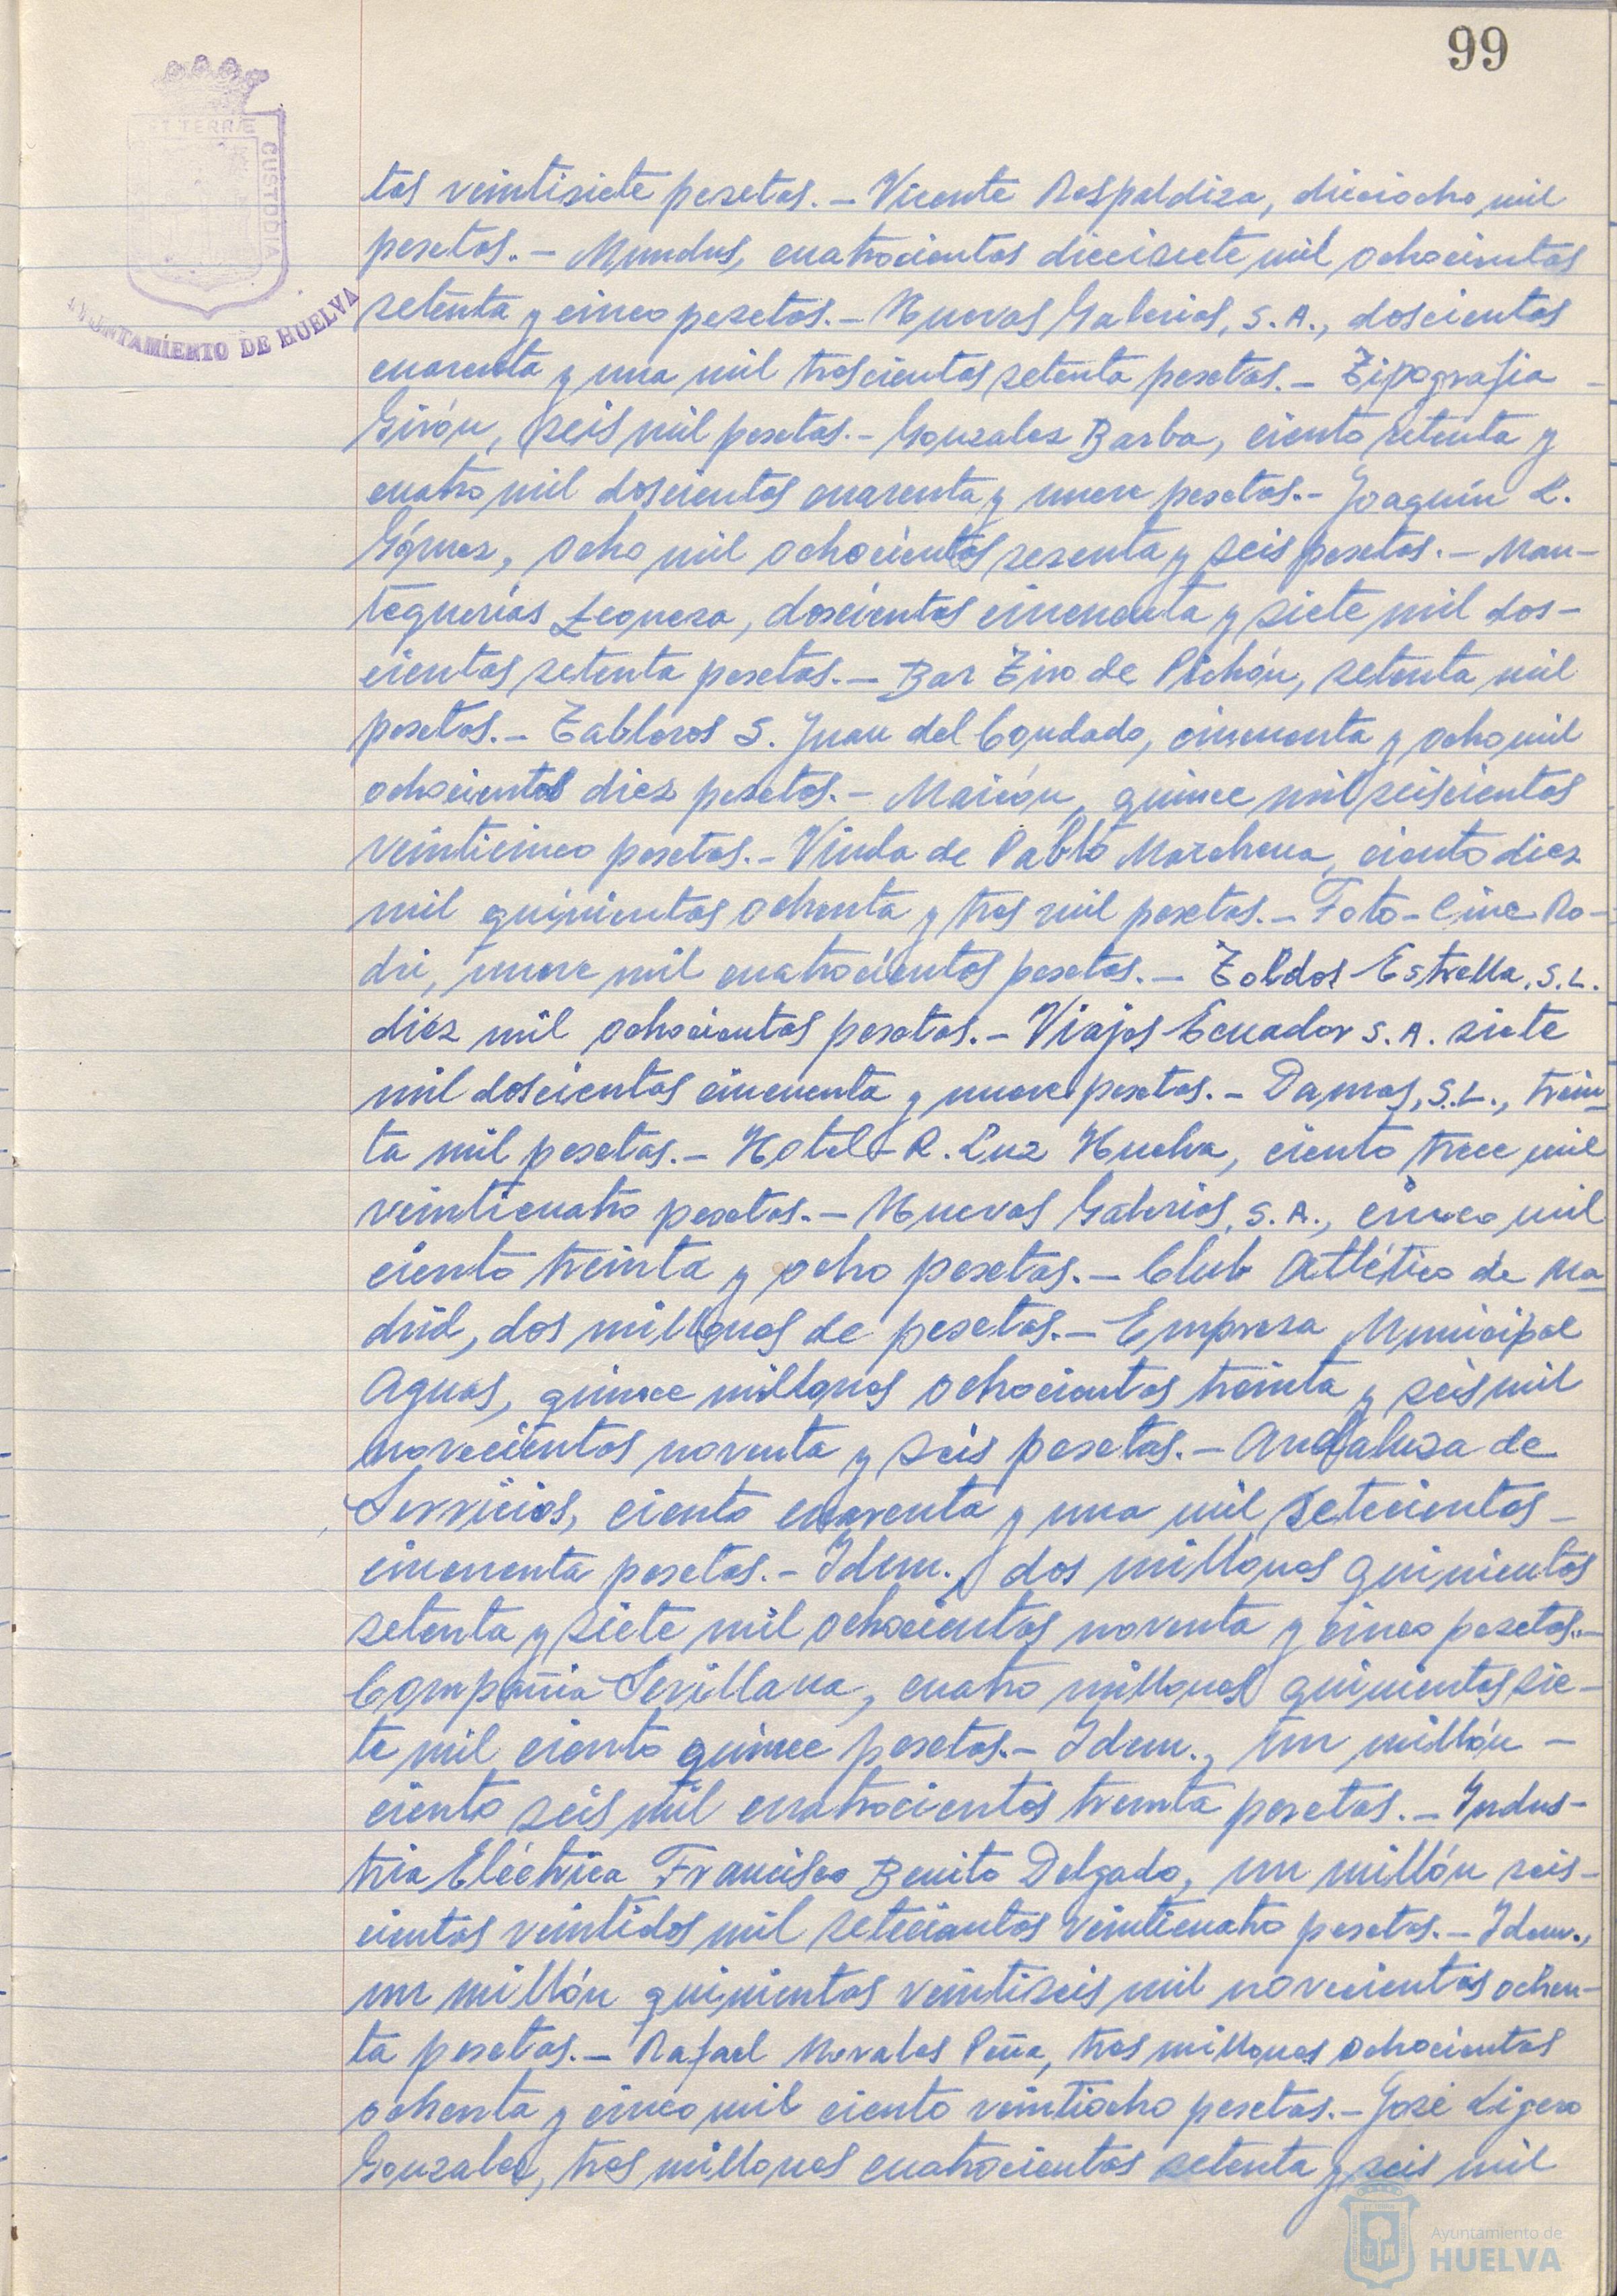 99
ET TERRÆ
CUSTODIA
AYUNTAMIENTO DE HUELVA
tas veintisiete pesetas.- Vicente Respaldiza, dieciocho mil
pesetas.- Mundus, cuatrocientas diecisiete mil ochocientas
setenta y cinco pesetas.- Nuevas Galerias, S.A., doscientas
cuarenta y una mil trescientas setenta pesetas.- Tipografia -
Girón, seis mil pesetas.- Gonzalez Barba, ciento setenta y
cuatro mil doscientas cuarenta y nueve pesetas.- Joaquín L.
Gómez, ocho mil ochocientas sesenta y seis pesetas.- Man-
tequerías Leonesa, doscientas cincuenta y siete mil dos-
cientas setenta pesetas.- Bar Tiro de Pichón, setenta mil
pesetas.- Tableros S. Juan del Condado, cincuenta y ocho mil
ochocientas diez pesetas.- Maicon, quince mil seiscientas
veinticinco pesetas.- Viuda de Pablo Marchena, ciento diez
mil quinientas ochenta y tres mil pesetas.- Foto-Cine Ro-
dri, nueve mil cuatrocientas pesetas.- Toldos Estrella, S.L.
diez mil ochocientas pesetas.- Viajes Ecuador S.A. siete
mil doscientas cincuenta y nueve pesetas.- Damas, S.L., trein-
ta mil pesetas.- Hotel-R. Luz Huelva, ciento trece mil
veinticuatro pesetas.- Nuevas Galerias, S.A., cinco mil
ciento treinta y ocho pesetas.- Club Atlético de Ma-
drid, dos millones de pesetas.- Empresa Municipal
Aguas, quince millones ochocientas treinta y seis mil
novecientas noventa y seis pesetas.- Andaluza de
Servicios, ciento cuarenta y una mil setecientas -
cincuenta pesetas.- Idem., dos millones quinientas
setenta y siete mil ochocientas noventa y cinco pesetas.-
Compañia Sevillana, cuatro millones quinientas sie-
te mil ciento quince pesetas.- Idem., un millón -
ciento seis mil cuatrocientas treinta pesetas.- Indus-
tria Eléctrica Francisco Benito Delgado, un millón seis-
cientas veintidos mil setecientas veinticuatro pesetas.- Idem.,
un millón quinientas veintiseis mil novecientas ochen-
ta pesetas.- Rafael Morales Peña, tres millones ochocientas
ochenta y cinco mil ciento veintiocho pesetas.- José Ligero
Gonzalez, tres millones cuatrocientas setenta y seis mil
Ayuntamiento de
HUELVA